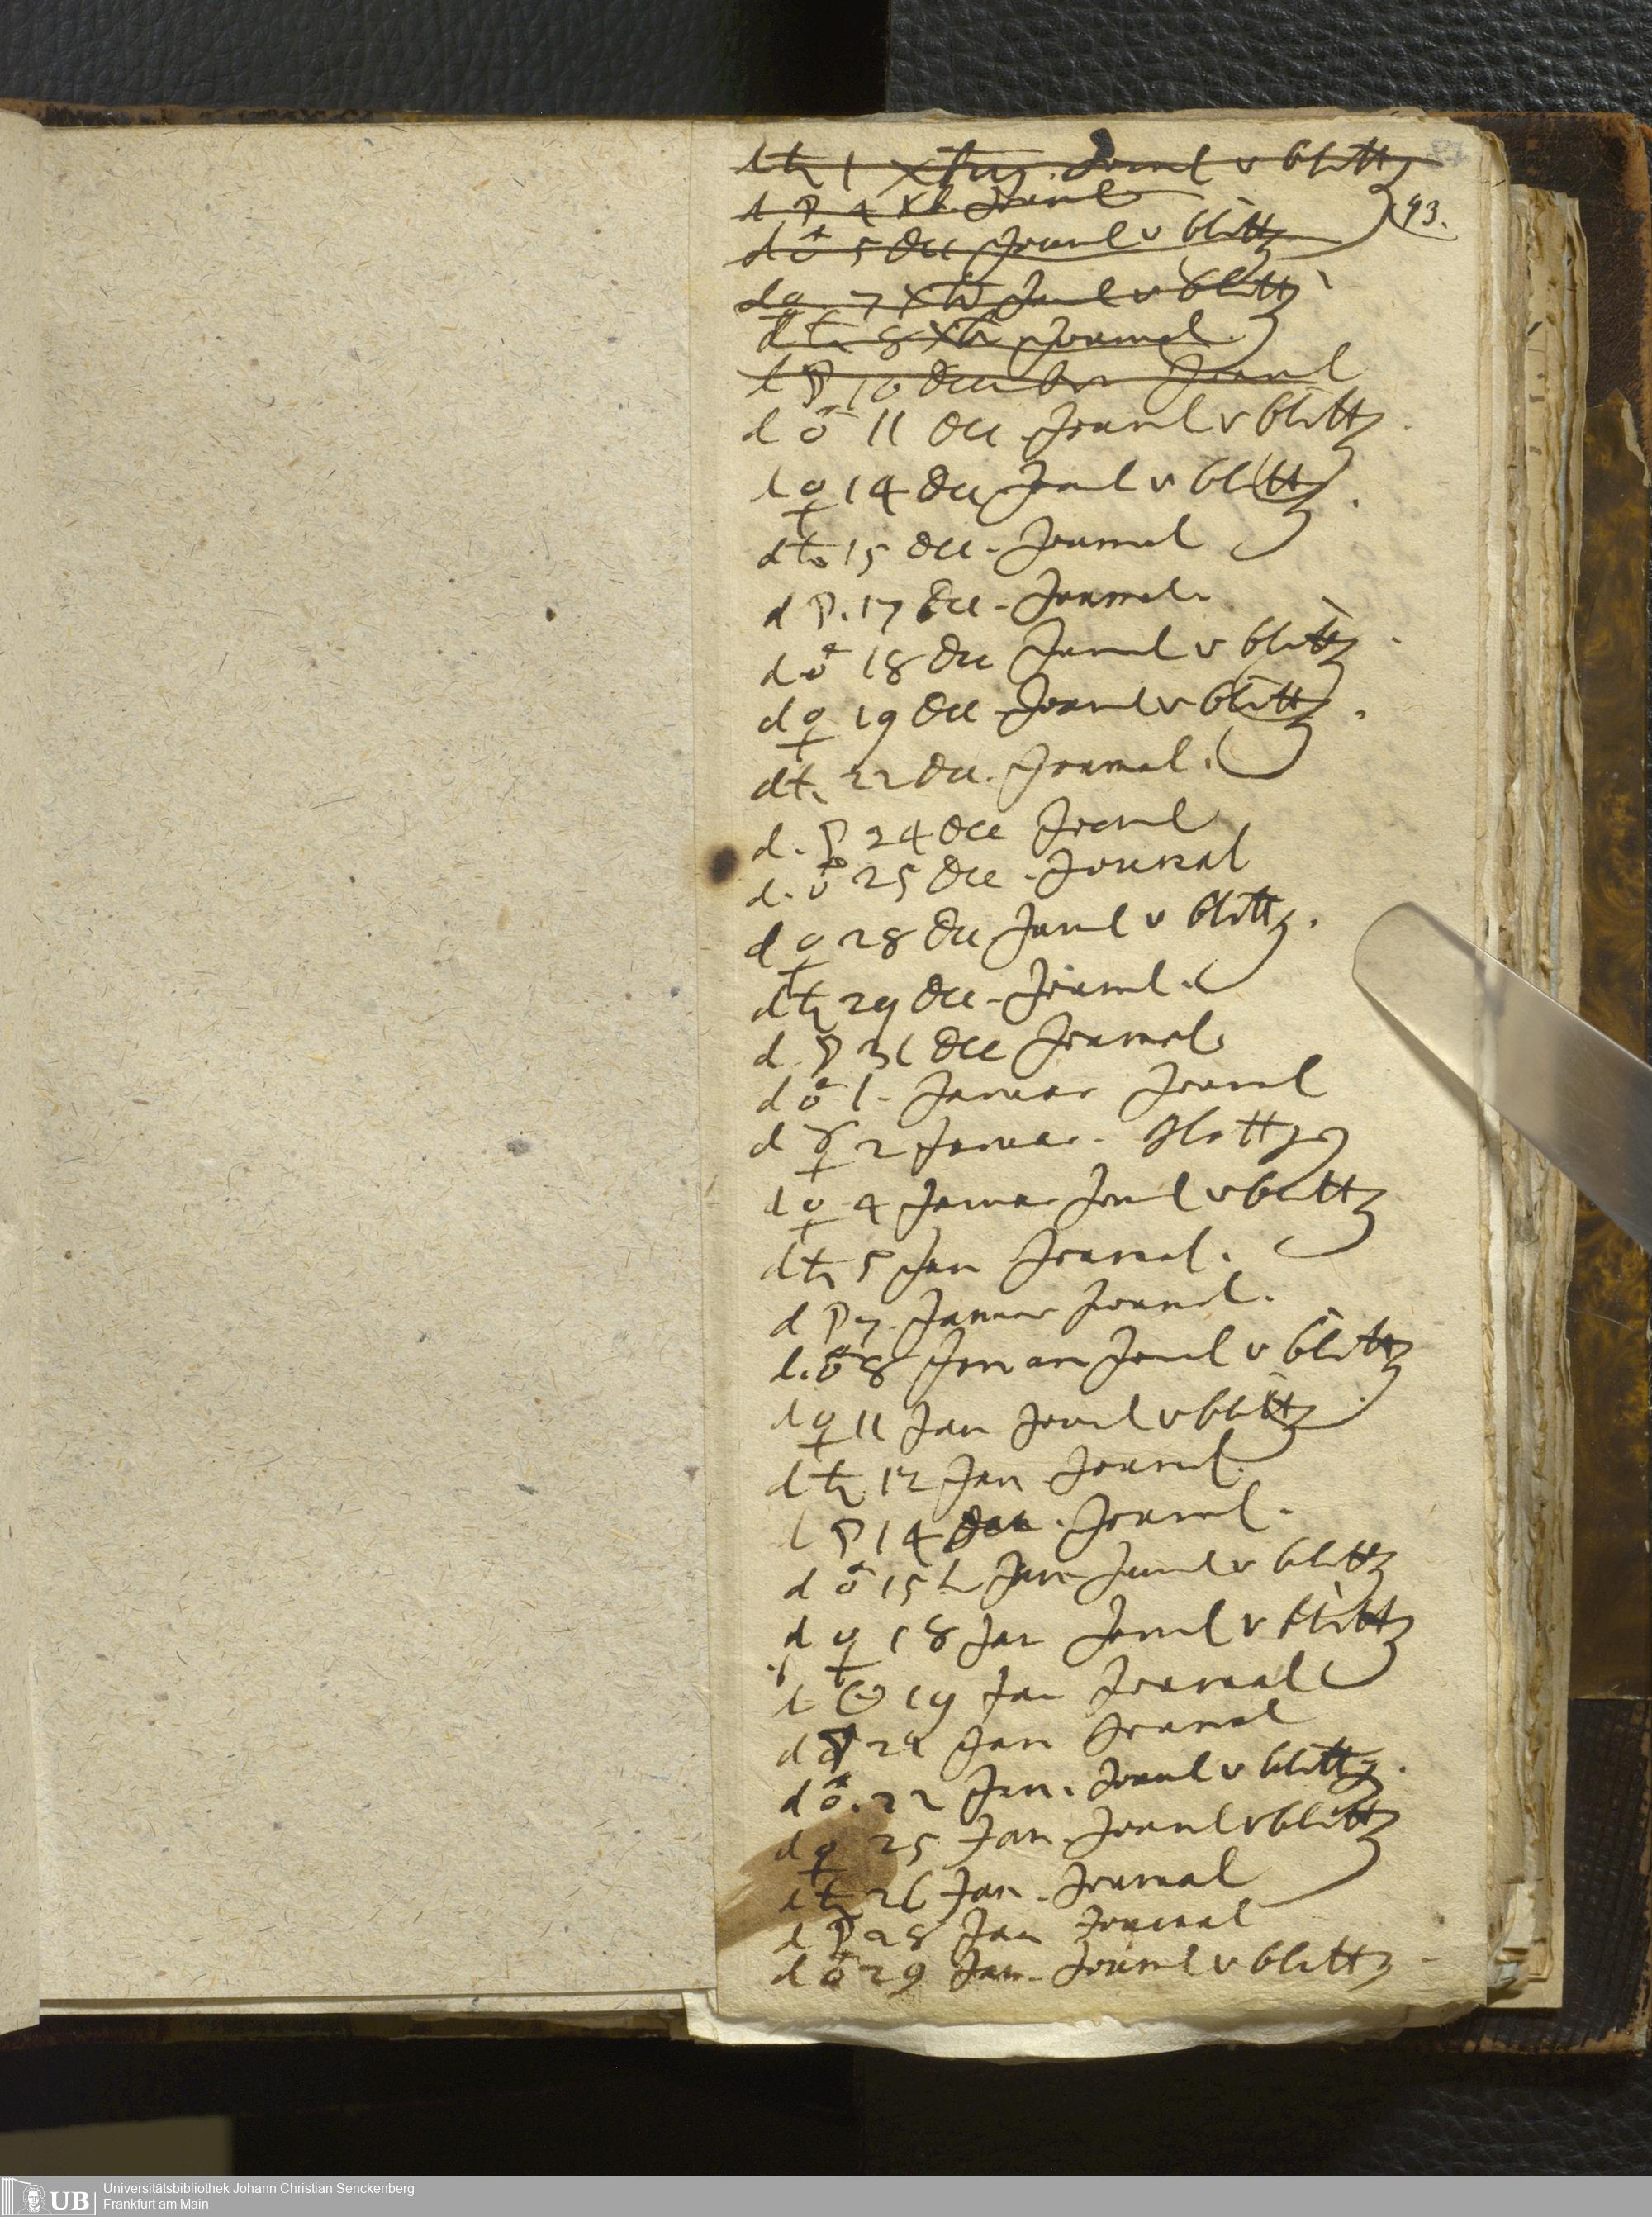 d ♄ 1 Xbris. Journl v blittz
d ☽ 4 Xb Journl
93.
d ♂ 5 Dec Journl v blittz
d ♀ 7 Xb Jornl v blittz
d ♄ 8 Xbr Journal
d ☽ 10 December Journl
d ♂ 11 Dec Journl v blittz.
d ♀ 14 Dec Jornl v blittz.
d ♄ 15 Dec. Journal
d ☽. 17 Dec. Journal.
d ♂ 18 Dec Journl v blittz.
d ♀ 19 Dec Journl v blittz.
d ♄ 22 Dec. Journal.
d. ☽ 24 Dec Journl
d. ♂ 25 Dec. Journal
d ♀ 28 Dec Jornl v blittz.
d ♄ 29 Dec. Journal.
d ☽ 31 Dec Journal
d ♂ 1. Januar Journl
d ☿ 2 Januar. blettz
d ♀ 4 Januar Jornl v blittz
d ♄ 5 Jan Journal.
d ☽ 7. Januar Journl.
d. ♂ 8 Januar Jornl v blittz
d ♀ 11 Jan Journl v blittz.
d ♄ 12 Jan Journl.
d ☽ 14 Jan. Journl.
d ♂ 15 Jan Journl v blittz
d ♀ 18 Jan Jornl v blittz
d 19 Jan Journal
d 21 Jan Journal
d ♂. 22 Jan. Journl v blittz.
d ♀ 25 Jan. Journl v blittz
d ♄ 26 Jan. Journal
d ☽ 28 Jan Journal
d ♂ 29 Jan. Journl v blittz.
UB
Universitätsbibliothek Johann Christian Senckenberg
Frankfurt am Main